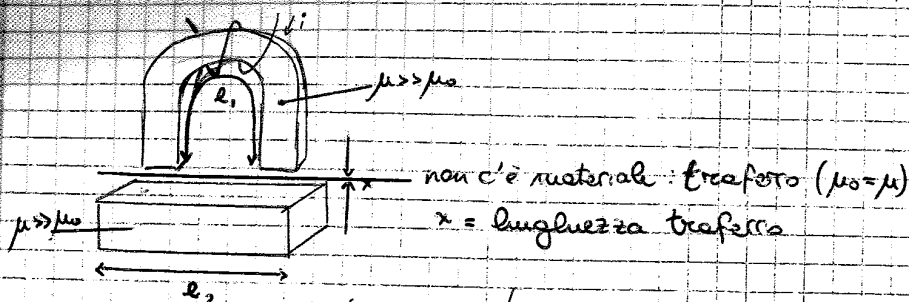 i
μ>>μ₀
l₁
x
non c'è materiale : traferro (μ₀=μ)
μ>>μ₀
x = lunghezza traferro
l₂